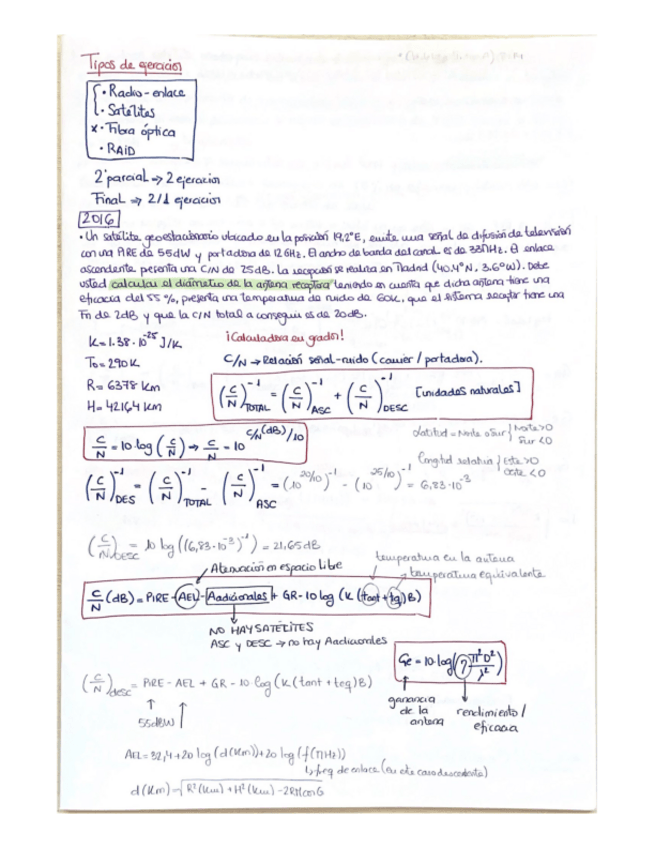 Tipos de ejercicios
• Radio-enlace
• Satélites
x • Fibra óptica
• RAID
2º parcial => 2 ejercicios
Final => 2/1 ejercicios
2016
• Un satélite geoestacionario ubicado en la posición 19,2°E, emite una señal de difusión de televisión
con una PIRE de 55dW y portadora de 12GHz. El ancho de banda del canal es de 33MHz. El enlace
ascendente presenta una C/N de 25dB. La recepción se realiza en Madrid (40.4°N, 3.6°W). Debe
usted calcular el diámetro de la antena receptora teniendo en cuenta que dicha antena tiene una
eficacia del 55%, presenta una temperatura de ruido de 60K, que el sistema receptor tiene una
Fn de 2dB y que la C/N total a conseguir es de 20dB.
K = 1.38 · 10^-23 J/K
¡Calculadora en grados!
T0 = 290K
C/N → Relación señal-ruido (carrier / portadora).
R = 6378 km
H = 42164 km
(C/N)^-1 TOTAL = (C/N)^-1 ASC + (C/N)^-1 DESC [unidades naturales]
C/N = 10 · log (C/N) → C/N = 10^(C/N(dB)/10)
Latitud = Norte o Sur { Norte >0 Sur <0
Longitud relativa { Este >0 Oeste <0
(C/N)^-1 DES = (C/N)^-1 TOTAL - (C/N)^-1 ASC = (10^(20/10))^-1 - (10^(25/10))^-1 = 6,83·10^-3
(C/N) DESC = 10 log ((6,83·10^-3)^-1) = 21,65dB
temperatura en la antena
Atenuación en espacio libre
temperatura equivalente
C/N (dB) = PIRE - AEL - Aadicionales + GR - 10 log (K (tant + teq) B)
NO HAY SATÉLITES
ASC y DESC → no hay Aadicionales
Ge = 10·log(η π²D²/λ²)
(C/N) desc = PIRE - AEL + GR - 10 log (K (tant + teq) B)
ganancia de la antena
rendimiento / eficacia
55dBW
AEL = 32,4 + 20 log (d(Km)) + 20 log (f(MHz))
↳ freq de enlace (en este caso descendente)
d(Km) = √R²(Km) + H²(Km) - 2RHcosG